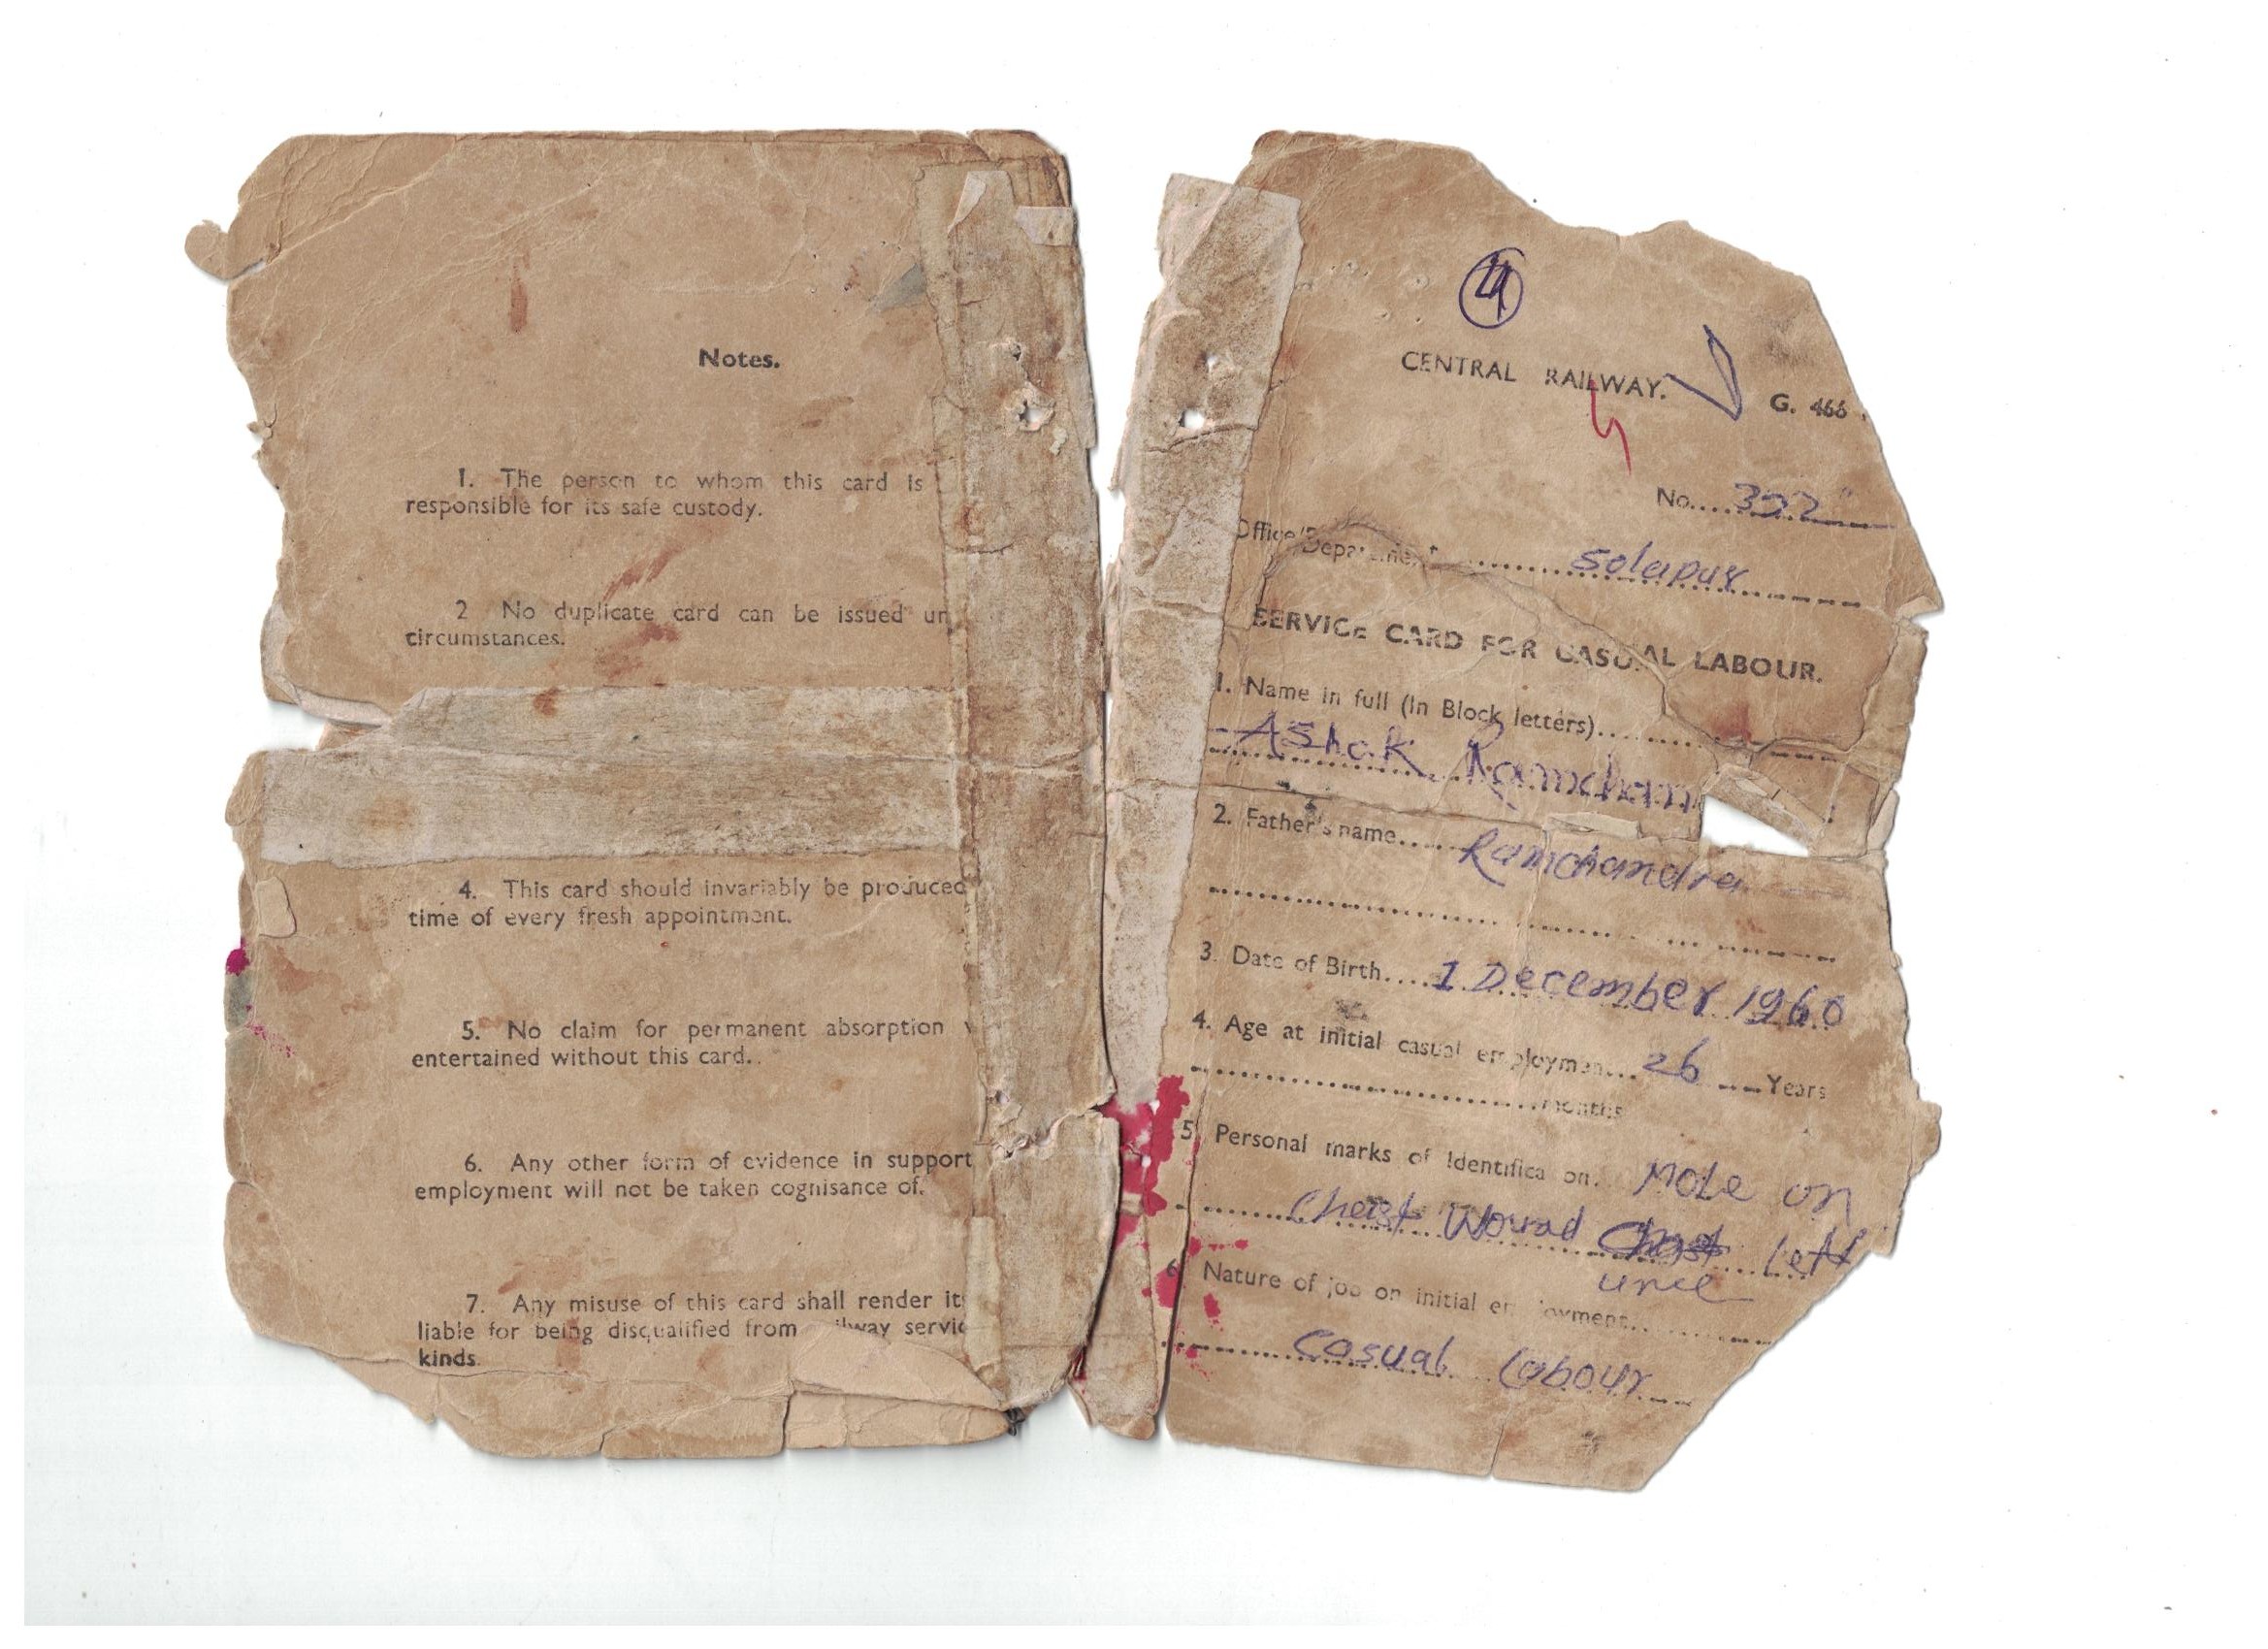 Notes.
1. The person to whom this card is
responsible for its safe custody.
2 No duplicate card can be issued un
circumstances.
4. This card should invariably be produced
time of every fresh appointment.
5. No claim for permanent absorption
entertained without this card.
6. Any other form of evidence in support
employment will not be taken cognisance of.
7. Any misuse of this card shall render its
liable for being disqualified from railway servic
kinds.
4
CENTRAL RAILWAY.
G. 466
No....
Office/Department........solapur
SERVICE CARD FOR CASUAL LABOUR.
1. Name in full (In Block letters)....
Ashok Ramchan
2. Father's name....Ramchandra
3. Date of Birth....1 December 1960
4. Age at initial casual employmen...26....Years
months
5. Personal marks of Identifica on. Mole on
Chest Wound left
6. Nature of job on initial em loyment....
Casual Labour